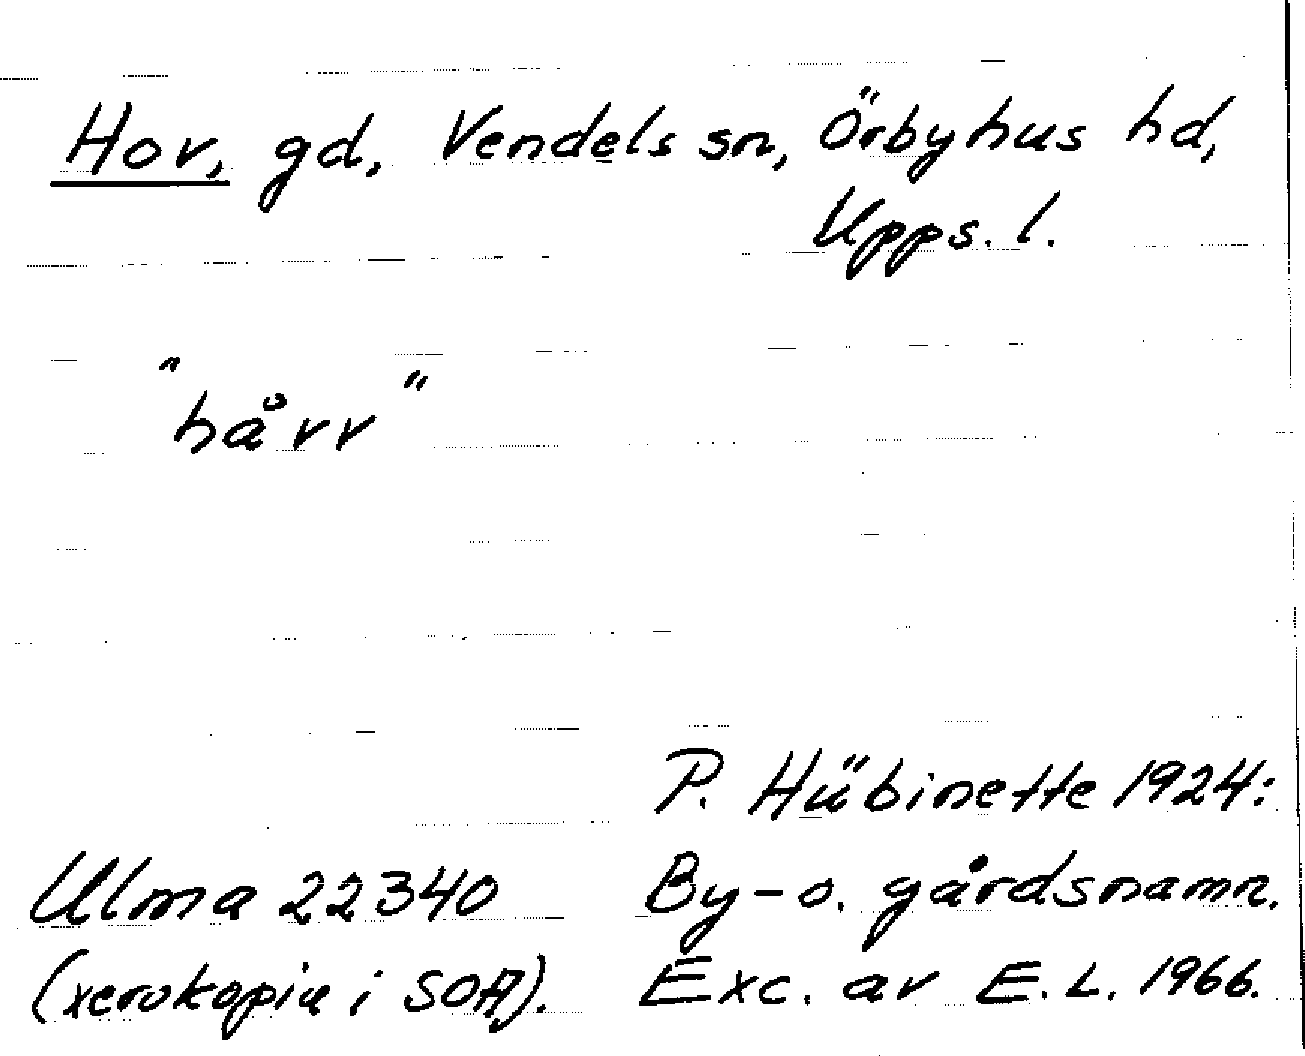 Hov, gd, Vendels sn, Örbyhus hd,
Upps. l.
"håvv"
P. Hübinette 1924:
Ulma 22340 By-o. gårdsnamn.
(xerokopia i SOA). Exc. av E.L. 1966.